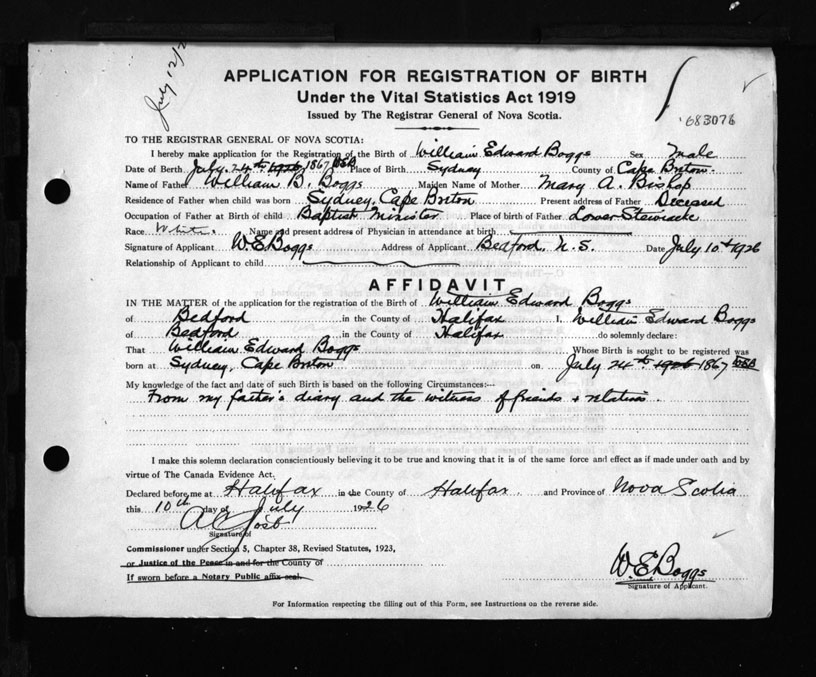 July 12/2
APPLICATION FOR REGISTRATION OF BIRTH
Under the Vital Statistics Act 1919
Issued by The Registrar General of Nova Scotia.
683076
TO THE REGISTRAR GENERAL OF NOVA SCOTIA:
I hereby make application for the Registration of the Birth of William Edward Boggs Sex Male
Date of Birth July 24th 1926 1867 WEB Place of Birth Sydney County of Cape Breton.
Name of Father William B. Boggs Maiden Name of Mother Mary A. Bishop
Residence of Father when child was born Sydney, Cape Breton Present address of Father Deceased
Occupation of Father at Birth of child Baptist Minister Place of birth of Father Lower Stewiacke
Race White. Name and present address of Physician in attendance at birth
Signature of Applicant W.E Boggs Address of Applicant Bedford, N.S. Date July 10th 1926
Relationship of Applicant to child
AFFIDAVIT
IN THE MATTER of the application for the registration of the Birth of William Edward Boggs
of Bedford in the County of Halifax I, William Edward Boggs
of Bedford in the County of Halifax do solemnly declare:
That William Edward Boggs Whose Birth is sought to be registered was
born at Sydney, Cape Breton on July 24th 1926 1867 WEB
My knowledge of the fact and date of such Birth is based on the following Circumstances:—
From my father's diary and the witness of friends + relatives.
I make this solemn declaration conscientiously believing it to be true and knowing that it is of the same force and effect as if made under oath and by
virtue of The Canada Evidence Act.
Declared before me at Halifax in the County of Halifax and Province of Nova Scotia
this 10th day of July 1926
Signature of
Commissioner under Section 5, Chapter 38, Revised Statutes, 1923,
or Justice of the Peace in and for the County of
If sworn before a Notary Public affix seal.
W.E. Boggs
Signature of Applicant.
For Information respecting the filling out of this Form, see Instructions on the reverse side.